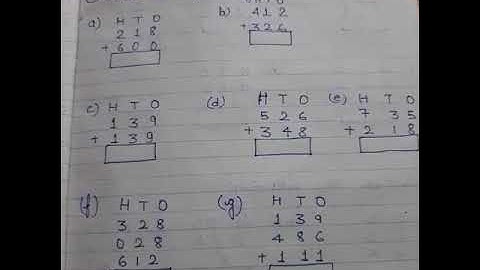 a) H T O
218
+ 600
b)
412
+326
c) H T O
139
+ 139
(d) H T O
526
+ 348
(e) H T O
7 35
+ 2 18
(f) H T O
328
028
612
(g) H T O
139
486
+ 111